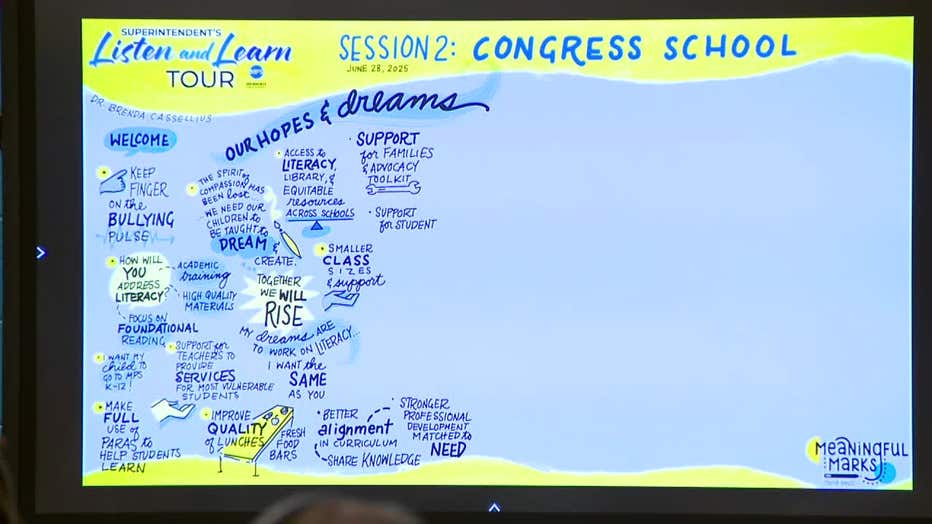 SUPERINTENDENT'S
Listen and Learn
TOUR
SESSION 2: CONGRESS SCHOOL
JUNE 28, 2025
DR. BRENDA CASSELLIUS
WELCOME
OUR HOPES & dreams
KEEP
FINGER
ON the
BULLYING
PULSE
THE SPIRIT of
COMPASSION HAS
BEEN lost
WE NEED OUR
CHILDREN to
BE TAUGHT to
DREAM &
CREATE.
ACCESS to
LITERACY,
LIBRARY, &
EQUITABLE
resources
ACROSS SCHOOLS
SUPPORT
for FAMILIES
& ADVOCACY
TOOLKIT
SUPPORT
for STUDENT
SMALLER
CLASS
SIZES
& support
HOW WILL
YOU
ADDRESS
LITERACY?
ACADEMIC
training
HIGH QUALITY
MATERIALS
FOCUS ON
FOUNDATIONAL
READING
TOGETHER
WE WILL
RISE
MY dreams ARE
TO WORK ON LITERACY...
I WANT the
SAME
AS YOU
I WANT MY
child to
GO TO MPS
K-12!
SUPPORT for
TEACHERS TO
PROVIDE
SERVICES
FOR MOST VULNERABLE
STUDENTS
MAKE
FULL
USE of
PARAS to
HELP STUDENTS
LEARN
IMPROVE
QUALITY
of LUNCHES
FRESH
FOOD
BARS
BETTER
alignment
IN CURRICULUM
SHARE KNOWLEDGE
STRONGER
PROFESSIONAL
DEVELOPMENT
MATCHED to
NEED
MEANINGFUL
MARKS